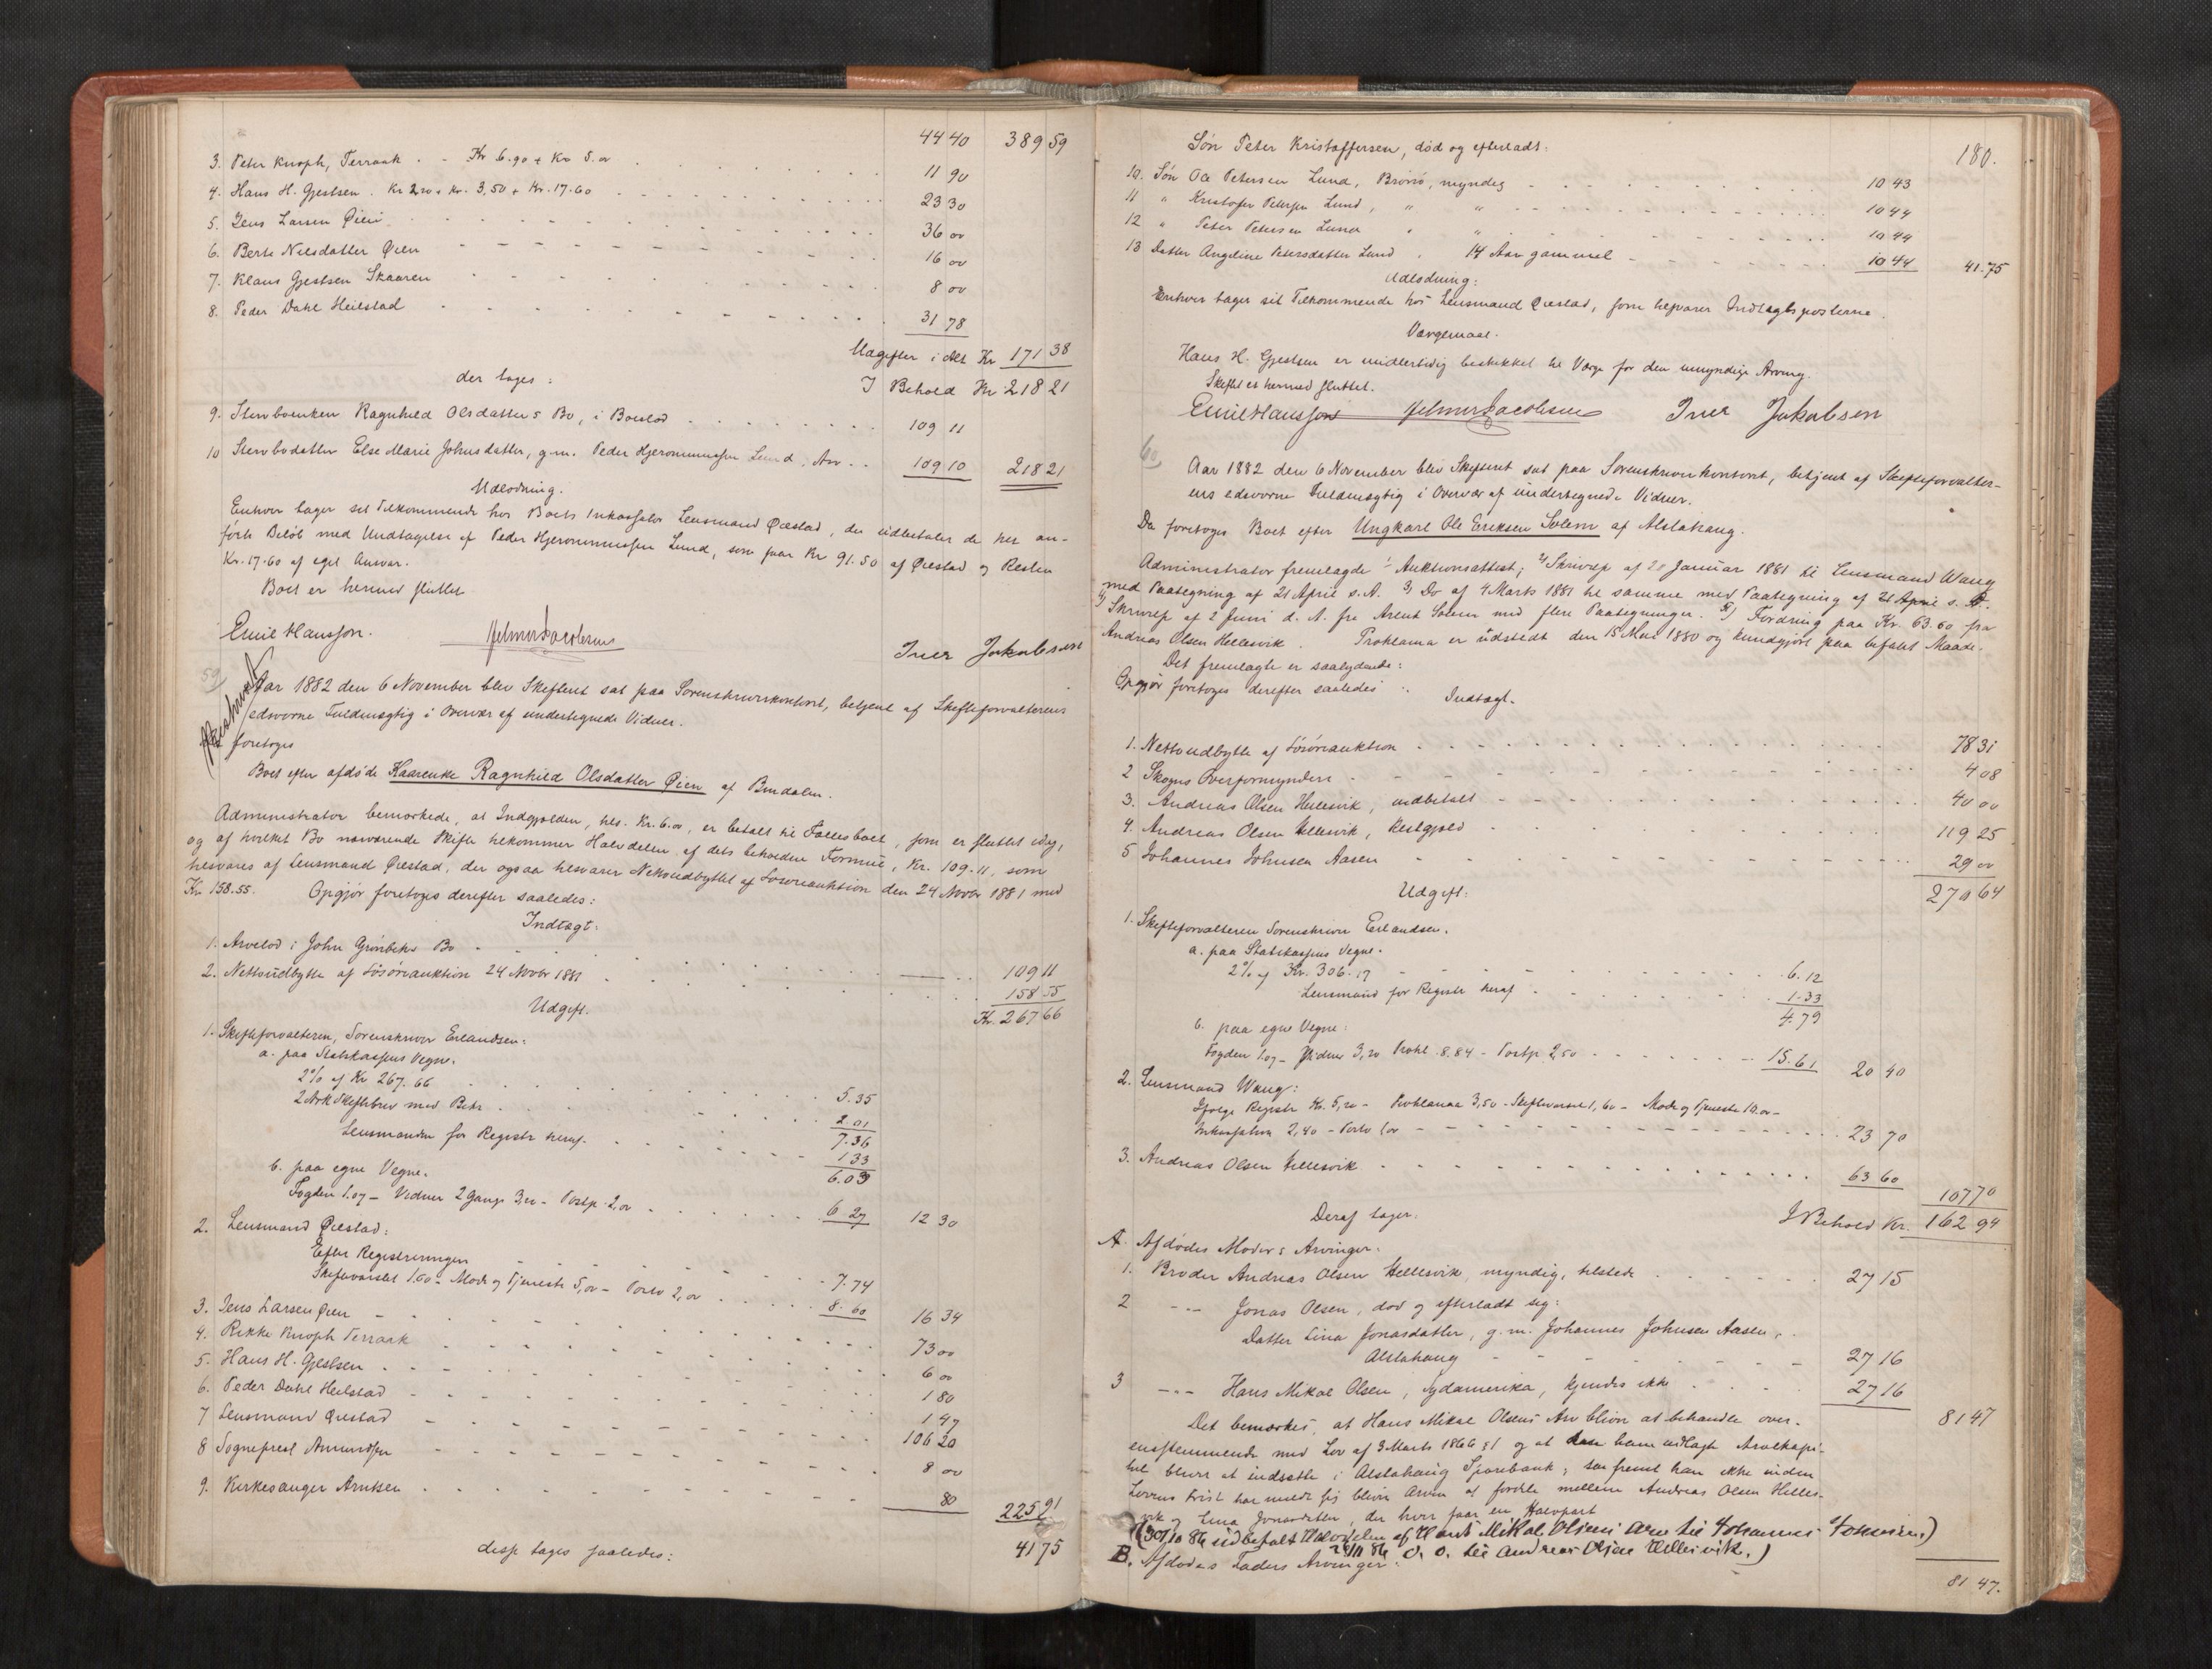 44 40 389 59
3. Peter Knoph, Terraak . - Kr 6.90 + Kr 5.00 11 90
4. Hans H. Gjestsen . Kr 2.20 + Kr. 3,50 + Kr. 17.60 23 30
5. Jens Larsen Øien 36 00
6. Berte Nilsdatter Øien 16 00
7. Klaus Gjestsen Skaaren 8 00
8. Peder Dahl Heilstad 31 78
Udgifter i Alt Kr 171 38
I Behold Kr 218 21
der tages:
9. Stervboenken Ragnhild Olsdatters Bo, i Boeslod 109 11
10 Stervbodatter Else Marie Johnsdatter, g.m. Peder Hjeronimussen Lund, Arv 109 10 218 21
Udlodning.
Enhver tager sit Tilkommende hos Boets Inkassator Lensmand Qvestad, der udbetaler de her an-
førte Beløb med Undtagelse af Peder Hjeronimussen Lund, som faar Kr 91.50 af Qvestad og Resten
Kr. 17.60 af eget Ansvar.
Boet er hermed sluttet
Emil Hansson. Helmer Jacobsen Iver Jakobsen
59
Aar 1882 den 6 November blev Skifteret sat paa Sorenskriverkontoret, betjent af Skifteforvalterens
edsvorne Fuldmægtig i Overvær af undertegnede Vidner.
foretoges
Boet efter afdøde Kaarenke Ragnhild Olsdatter Øien af Bindalen.
Administrator bemærkede, at Indgjælden, hos. Kr. 6.00, er betalt til Fællesboet, som er sluttet idag,
og af hvilket Bo nærværende Skifte tilkommer Halvdelen af dets beholdne Formue, Kr. 109.11, som
besvares af Lensmand Qvestad, der ogsaa besvarer Nettoudbyttet af Løsøreauktion den 24 Novbr 1881 med
Kr. 158.55. Opgjør foretoges derefter saaledes:
Indtægt:
1. Arvelod i John Grønbeks Bo 109 11
2. Nettoudbytte af Løsøreauktion 24 Novbr 1881 158 55
Kr. 267 66
Udgift.
1. Skifteforvalteren, Sorenskriver Erlandsen:
a. paa Statskassens Vegne.
2% af Kr 267.66 5.35
2 Ark Skiftebrev med Bekr. 2.01
7.36
Lensmanden for Registr. heraf. 1 33
6.03
b. paa egne Vegne.
Fogden 1.07 - Vidner 2 Gange 3,20 - Postp. 2,00 6 27 12 30
2. Lensmand Qvestad:
Efter Registreringen 7.74
Skiftevarslet 1.60 - Møde og Tjeneste 5,00 - Porto 2,00 8.60 16 34
3. Jens Larsen Øien 73 00
4. Rikke Knoph Terraak 6 00
5. Hans H. Gjestsen 1 80
6. Peder Dahl Heilstad 1 47
7 Lensmand Qvestad 106 20
8 Sogneprest Amundsen 8 00
9. Kirkesanger Arntsen 80
225 91
disse tages saaledes: 41 75
180.
Søn Peter Kristoffersen, død og efterladt:
10. Søn Ole Petersen Lund, Brønø, myndig 10 43
11 " Kristofer Petersen Lund, " " 10 44
12 " Peter Petersen Lund " " 10 44
13 Datter Angeline Petersdatter Lund . 14 Aar gammel 10 44 41.75
Udlodning:
Enhver tager sit Tilkommende hos Lensmand Qvestad, som besvarer Indtægtsposterne.
Værgemaal.
Hans H. Gjestsen er midlertidig beskikket til Værge for den umyndige Arving.
Skiftet er hermed sluttet.
Emil Hansson Helmer Jacobsen Iver Jakobsen
60
Aar 1882 den 6 November blev Skifteret sat paa Sorenskriverkontoret, betjent af Skifteforvalter-
ens edsvorne Fuldmægtig i Overvær af undertegnede Vidner.
Da foretoges Boet efter Ungkarl Ole Eriksen Solem af Alstahaug.
Administrator fremlagde 1) Auktionsattest; 2) Skrivelse af 20 Januar 1881 til Lensmand Wang
med Paategning af 21 April s. A. 3) Do af 4 Marts 1881 til samme med Paategning af 21 April s. A.
4) Skrivelse af 2 Juni d. A. fra Arent Solem med flere Paategninger. 5) Fordring paa Kr. 63.60 fra
Andreas Olsen Hellesvik. Proklama er udstedt den 15 Mai 1880 og kundgjort paa befalet Maade.
Det fremlagte er saalydende:
Opgjør foretoges derefter saaledes:
Indtægt.
1. Nettoudbytte af Løsøreauktion 78 31
2 Skogns Overformynderi 4 08
3. Andreas Olsen Hellesvik, indbetalt 40 00
4. Andreas Olsen Hellesvik, Restgjæld 119 25
5 Johannes Johnsen Aasen 29 00
270 64
Udgift:
1. Skifteforvalteren Sorenskriver Erlandsen.
a. paa Statskassens Vegne.
2% af Kr. 306.17 6.12
Lensmand for Registr heraf 1.33
4.79
b. paa egne Vegne:
Fogden 1.07 - Vidner 3,20 Prokl. 8.84 - Postp 2,50 15.61 20 40
2. Lensmand Wang:
Ifølge Registr Kr. 5,20 - Proklama 3,50 - Skiftevarsel 1,60 - Møde og Tjeneste 10.00 -
Inkassation 2,40 - Porto 1,00 23 70
3. Andreas Olsen Hellesvik 63 60
107 70
I Behold Kr. 162 94
Deraf tager:
A. Afdødes Moders Arvinger.
1. Broder Andreas Olsen Hellesvik, myndig, tilstede 27 15
2 -"- Jonas Olsen, død og efterladt sig:
Datter Lina Jonasdatter, g.m. Johannes Johnsen Aasen,
Alstahaug 27 16
3 -"- Hans Mikal Olsen, Sydamerika, kjendes ikke 27 16
81 47
Det bemærkes, at Hans Mikal Olsens Arv bliver at behandle over-
ensstemmende med Lov af 3 Marts 1866 § 1 og at den ham udlagte Arvekapi-
tal bliver at indsætte i Alstahaug Sparebank; saafremt han ikke inden
Lovens Frist har meldt sig bliver Arven at fordele mellem Andreas Olsen Helles-
vik og Lina Jonasdatter, der hver faar en Halvpart
(30/10 86 udbetalt Halvdelen af Hans Mikal Olsens Arv til Johannes Johnsen)
2/11 86 d. o. til Andreas Olsen Hellesvik.)
B. Afdødes Faders Arvinger.
81 47.